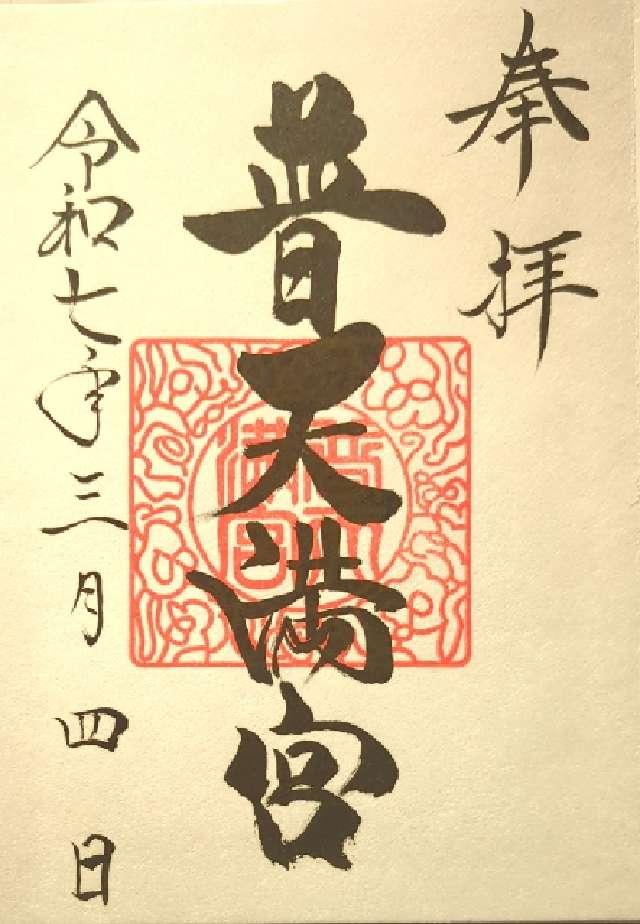 奉拝
普天満宮
令和七年三月四日